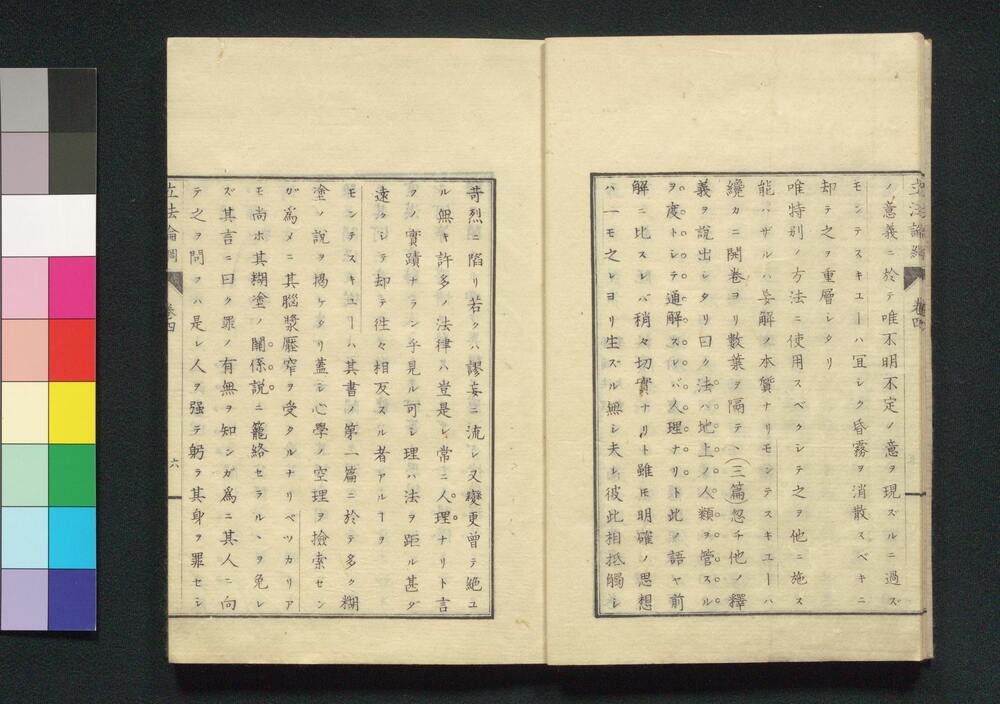 立法論綱 巻四
ノ意義ニ於テ唯不明不定ノ意ヲ現ズルニ過ズ
モンテスキエーハ冝シク昏霧ヲ消散スベキニ
却テ之ヲ重層シタリ
唯特别ノ方法ニ使用スベクシテ之ヲ他ニ施ス
能ハザルハ妄解ノ本質ナリモンテスキエーハ
纔カニ開卷ヨリ數葉ヲ隔テヽ(三篇)忽チ他ノ釋
義ヲ說出シタリ曰ク法ハ地上ノ人類ヲ管スル
ヲ度トシテ通解スレバ人理ナリト此ノ語ヤ前
解ニ比スレバ稍々切實ナリト雖𪜈明確ノ思想
ハ一モ之レヨリ生ズル無シ夫レ彼此相抵觸シ
苛烈ニ陷リ若クハ謬妄ニ流レ又變更曾テ絶ユ
ル無キ許多ノ法律ハ豈是レ常ニ人理ナリト言
フノ實蹟ナラン乎見ル可シ理ハ法ヲ距ル甚ダ
遠クシテ却テ徃々相反スル者アルヿヲ
モンテスキユーハ其書ノ第一篇ニ於テ多ク糊
塗ノ說ヲ揭ケタリ蓋シ心學ノ空理ヲ撿索セン
ガ爲メニ其腦漿壓窄ヲ受タルナリベツカリア
モ尚ホ其糊塗ノ關係說ニ籠絡セラルヽヲ免レ
ズ其言ニ曰ク罪ノ有無ヲ知ンガ爲ニ其人ニ向
テ之ヲ問フハ是レ人ヲ强テ躬ラ其身ヲ罪セシ
立法論綱 巻四 六